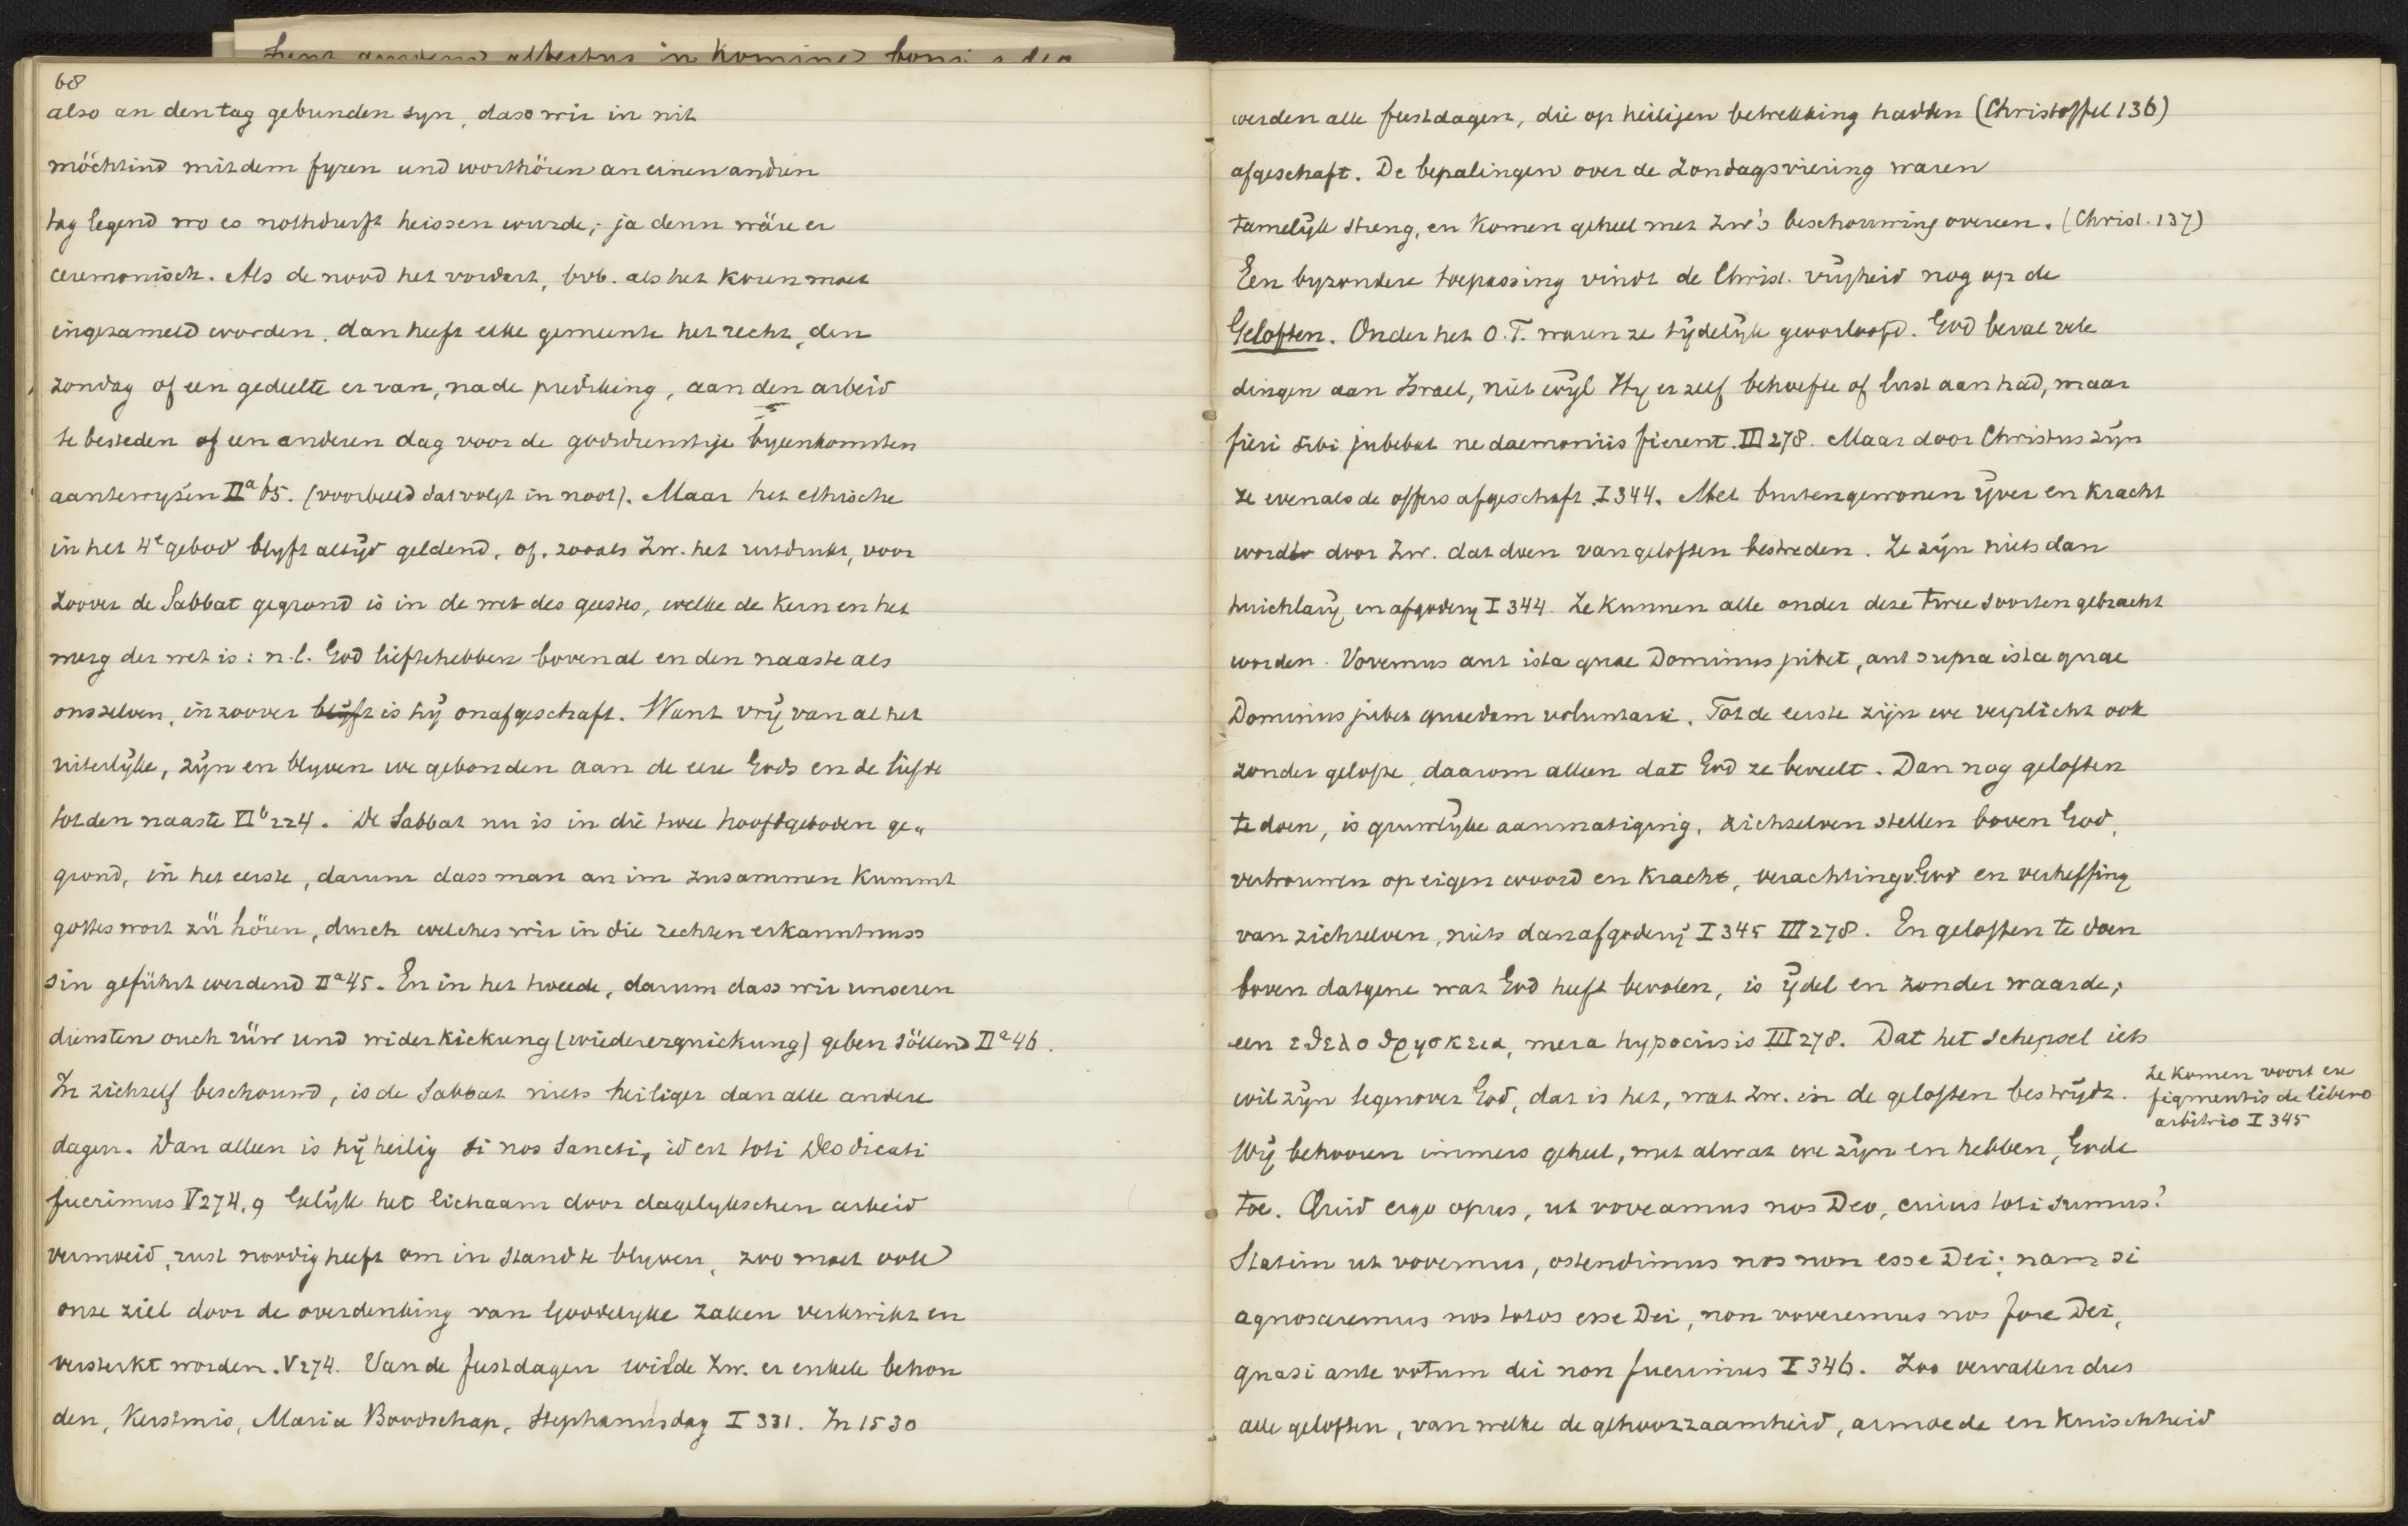 68
also an den tag gebunden syn, dass wir in nit
möchtind mit dem fyren und wort hören an einen andren
tag legend wo es nothdurft heissen wurde; ja denn wäre er
ceremonisch. Als de nood het vordert, bvb. als het koren moet
ingezameld worden, dan heeft elke gemeente het recht, den
zondag of een gedeelte er van, na de prediking, aan den arbeid
te besteden of een anderen dag voor de godsdienstige byeenkomsten
aantewyzen IIa 65. (voorbeeld dat volgt in noot). Maar het ethische
in het 4e gebod blyft altijd geldend, of, zooals Zw. het uitdrukt, voor
zoover de Sabbat gegrond is in de wet des geestes, welke de kern en het
merg der wet is: n.l. God lieftehebben bovenal en den naaste als
onszelven, in zoover blijft is hij onafgeschaft. Want vrij van al het
uiterlijke, zijn en blyven we gebonden aan de eere Gods en de liefde
tot den naaste VIb 224. De Sabbat nu is in die twee hoofdgeboden ge„
grond, in het eerste, darum dass man an im zusammen kummt
gottes wort zü hören, durch welches wir in die rechten erkanntnuss
sin geführt werdend IIa 45. En in het tweede, darum dass wir unseren
diensten ouch rüw und widerkickung (wiedererquickung) geben söllend IIa 46.
In zichzelf beschouwd, is de Sabbat niets heiliger dan alle andere
dagen. Dan alleen is hij heilig si nos sancti, id est toti Deo dicati
fuerimus V 274, 9 Gelijk het lichaam door dagelykschen arbeid
vermoeid, rust noodig heeft om in stand te blyven, zoo moet ook
onze ziel door de overdenking van Goddelyke zaken verkwikt en
versterkt worden. V 274. Van de feestdagen wilde Zw. er enkele behou
den, Kerstmis, Maria Boodschap, Stephanusdag I 331. In 1530
werden alle feestdagen, die op heiligen betrekking hadden (Christoffel 136)
afgeschaft. De bepalingen over de Zondagsviering waren
tamelijk streng, en komen geheel met Zw's beschouwing overeen. (Christ. 137)
Een byzondere toepassing vindt de Christ. vrijheid nog op de
Geloften. Onder het O.T. waren ze tijdelijk geoorloofd. God beval vele
dingen aan Israel, niet wijl Hy er zelf behoefte of lust aan had, maar
fieri sibi jubebat ne daemoniis fierent. III 278. Maar door Christus zijn
ze evenals de offers afgeschaft I 344. Met buitengewonen ijver en kracht
wordt door Zw. dat doen van geloften bestreden. Ze zijn niets dan
huichlarij en afgodery I 344. Ze kunnen alle onder deze twee soorten gebracht
worden. Vovemus aut ista quae Dominus jubet, aut supra ista quae
Dominus jubet quaedam voluntarie. Tot de eerste zijn we verplicht ook
zonder gelofte, daarom alleen dat God ze beveelt. Dan nog geloften
te doen, is gruwlijke aanmatiging, zichzelven stellen boven God,
vertrouwen op eigen woord en kracht, verachting v. God en verheffing
van zichzelven, niets dan afgoderij I 345 III 278. En geloften te doen
boven datgene wat God heeft bevolen, is ijdel en zonder waarde;
een εθελοθρησκεια, mera hypocrisis III 278. Dat het schepsel iets
wil zijn tegenover God, dat is het, wat Zw. in de geloften bestrijdt.
Ze komen voort ex
figmentis de libero
arbitrio I 345
Wij behooren immers geheel, met alwat we zijn en hebben, Gode
toe. Quid ergo opus, ut voveamus nos Deo, cuius toti sumus?
Statim ut vovemus, ostendimus nos non esse Dei; nam si
agnosceremus nos totos esse Dei, non voveremus nos fore Dei,
quasi ante votum dei non fuerimus I 346. Zoo vervallen dus
alle geloften, van welke de gehoorzaamheid, armoede en kuischheid